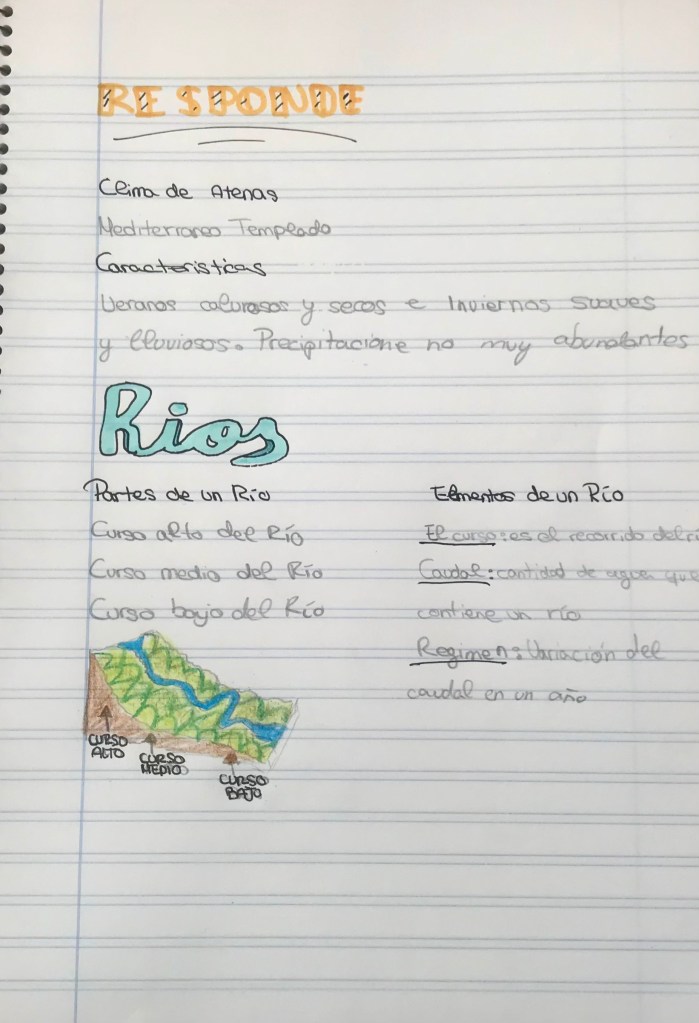 RESPONDE
Clima de Atenas
Mediterraneo Templado
Caracteristicas
Veranos calurosos y secos e Inviernos suaves
y lluviosos. Precipitacione no muy abundantes
Rios
Partes de un Río
Curso alto del Río
Curso medio del Río
Curso bajo del Río
Elmentos de un Río
El curso: es el recorrido del ri
Caudal: cantidad de agua que
contiene un río
Regimen: Variación del
caudal en un año
CURSO
ALTO
CURSO
MEDIO
CURSO
BAJO